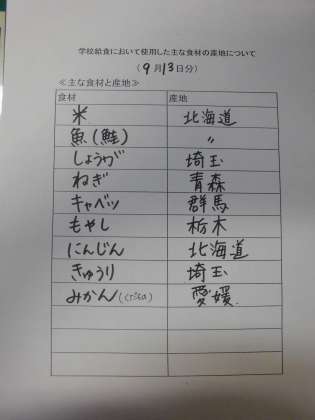 学校給食において使用した主な食材の産地について
(9月13日分)
≪主な食材と産地≫
食材 産地
米 北海道
魚(鮭) 〃
しょうが 埼玉
ねぎ 青森
キャベツ 群馬
もやし 栃木
にんじん 北海道
きゅうり 埼玉
みかん 愛媛